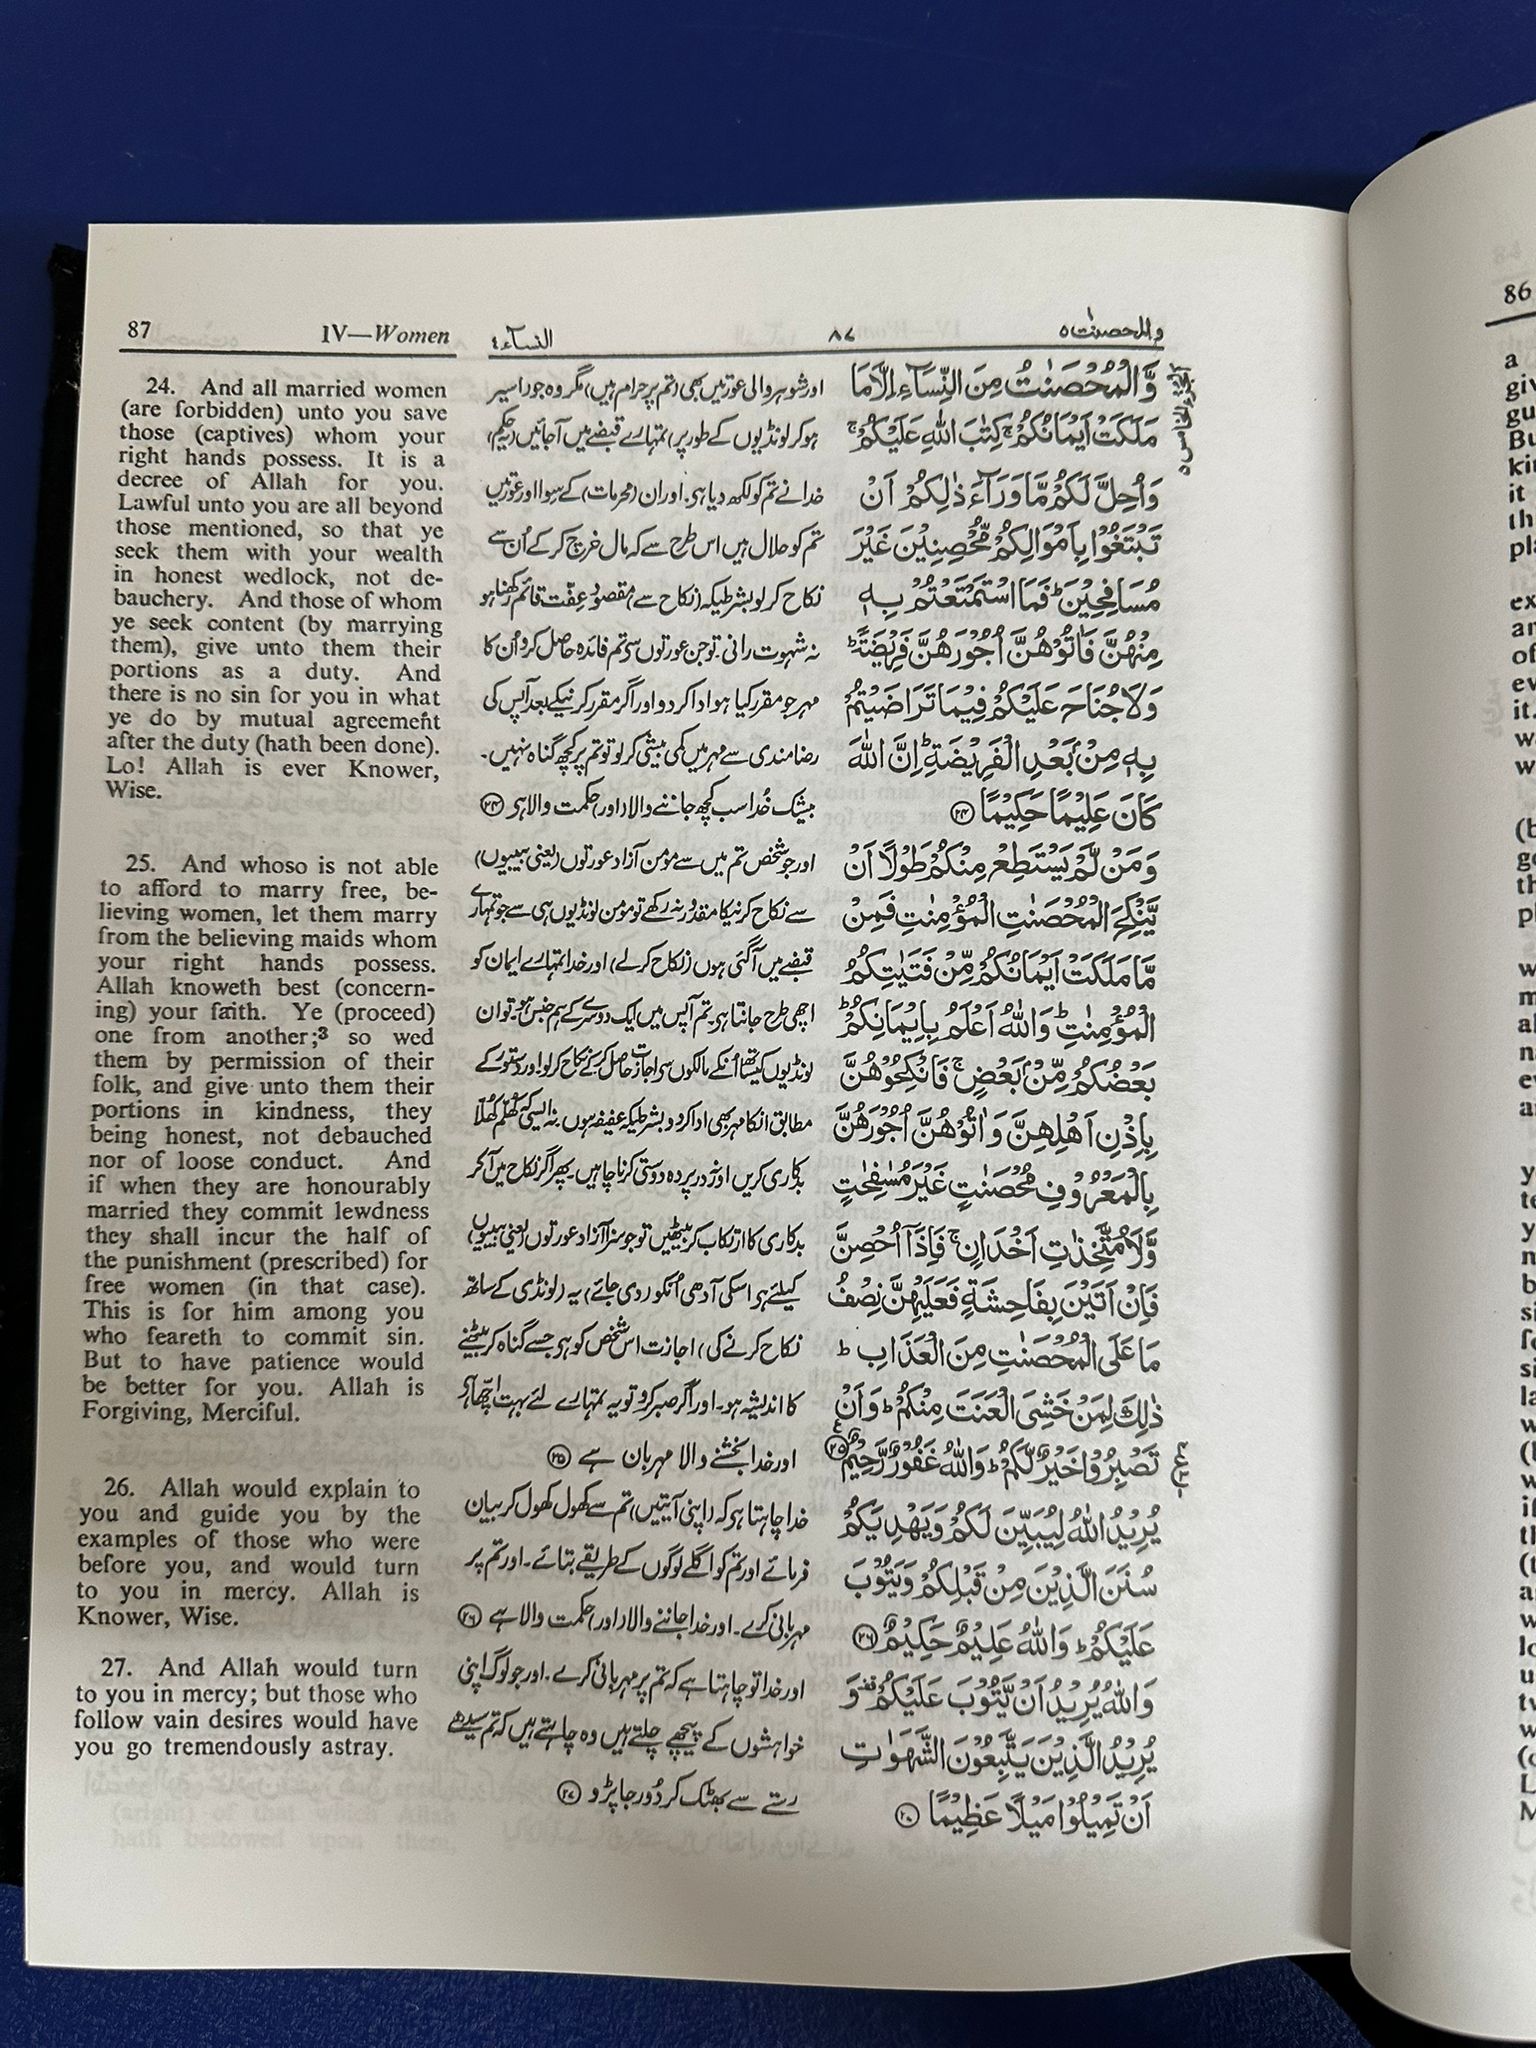 87 IV—Women النساء٤ ٨٧ والمحصنت٥
24. And all married women
(are forbidden) unto you save
those (captives) whom your
right hands possess. It is a
decree of Allah for you.
Lawful unto you are all beyond
those mentioned, so that ye
seek them with your wealth
in honest wedlock, not de-
bauchery. And those of whom
ye seek content (by marrying
them), give unto them their
portions as a duty. And
there is no sin for you in what
ye do by mutual agreement
after the duty (hath been done).
Lo! Allah is ever Knower,
Wise.
25. And whoso is not able
to afford to marry free, be-
lieving women, let them marry
from the believing maids whom
your right hands possess.
Allah knoweth best (concern-
ing) your faith. Ye (proceed)
one from another;³ so wed
them by permission of their
folk, and give unto them their
portions in kindness, they
being honest, not debauched
nor of loose conduct. And
if when they are honourably
married they commit lewdness
they shall incur the half of
the punishment (prescribed) for
free women (in that case).
This is for him among you
who feareth to commit sin.
But to have patience would
be better for you. Allah is
Forgiving, Merciful.
26. Allah would explain to
you and guide you by the
examples of those who were
before you, and would turn
to you in mercy. Allah is
Knower, Wise.
27. And Allah would turn
to you in mercy; but those who
follow vain desires would have
you go tremendously astray.
اور شوہر والی عورتیں بھی (تم پر حرام ہیں) مگر وہ جو (اسیر
ہو کر لونڈیوں کے طور پر) تمہارے قبضے میں آجائیں (یہ حکم)
خدا نے تم کو لکھ دیا ہی. اور ان (محرمات) کے سوا اور عورتیں
تم کو حلال ہیں اس طرح سے کہ مال خرچ کر کے اُن سے
نکاح کر لو بشرطیکہ (نکاح سے) مقصود عفّت قائم رکھنا ہو
نہ شہوت رانی۔ تو جن عورتوں سی تم فائدہ حاصل کرو اُن کا
مہر جو مقرر کیا ہو ادا کر دو اور اگر مقرر کرنیکے بعد آپس کی
رضامندی سے مہر میں کمی بیشی کر لو تو تم پر کچھ گناہ نہیں۔
بیشک خُدا سب کچھ جاننے والا (اور) حکمت والا ہی ۲۴
اور جو شخص تم میں سے مومن آزاد عورتوں (یعنی بیبیوں)
سے نکاح کرنیکا مقدور نہ رکھے تو مومن لونڈیوں ہی سے جو تمہارے
قبضے میں آگئی ہوں (نکاح کر لے) اور خدا تمہارے ایمان کو
اچھی طرح جانتا ہی. تم آپس میں ایک دوسرے کے ہم جنس ہو۔ تو ان
لونڈیوں کیساتھ اُنکے مالکوں سی اجازت حاصل کر کے نکاح کر لو. اور دستور کے
مطابق انکا مہر بھی ادا کر دو بشرطیکہ عفیفہ ہوں. نہ ایسی کہ کھلم کھلا
بدکاری کریں اور نہ در پردہ دوستی کرنا چاہیں۔ پھر اگر نکاح میں آکر
بدکاری کا ارتکاب کر بیٹھیں تو جو سزا آزاد عورتوں (یعنی بیبیوں)
کیلئے ہی اسکی آدھی اُنکو (دی جائے) یہ (لونڈی کے ساتھ
نکاح کرنے کی) اجازت اس شخص کو ہی جسے گناہ کر بیٹھنے
کا اندیشہ ہو۔ اور اگر صبر کرو تو یہ تمہارے لئے بہت اچھا ہی
اور خدا بخشنے والا مہربان ہے ۲۵
خدا چاہتا ہی کہ (اپنی آیتیں) تم سے کھول کھول کر بیان
فرمائے اور تم کو اگلے لوگوں کے طریقے بتائے۔ اور تم پر
مہربانی کرے۔ اور خدا جاننے والا (اور) حکمت والا ہے ۲۶
اور خدا تو چاہتا ہے کہ تم پر مہربانی کرے۔ اور جو لوگ اپنی
خواہشوں کے پیچھے چلتے ہیں وہ چاہتے ہیں کہ تم سیدھے
رستے سے بھٹک کر دُور جا پڑو ۲۷
وَّالْمُحْصَنٰتُ مِنَ النِّسَآءِ اِلَّا مَا
مَلَكَتْ اَيْمَانُكُمْ ۚ كِتٰبَ اللّٰهِ عَلَيْكُمْ ۚ
وَاُحِلَّ لَكُمْ مَّا وَرَآءَ ذٰلِكُمْ اَنْ
تَبْتَغُوْا بِاَمْوَالِكُمْ مُّحْصِنِيْنَ غَيْرَ
مُسَافِحِيْنَ ؕ فَمَا اسْتَمْتَعْتُمْ بِهٖ
مِنْهُنَّ فَاٰتُوْهُنَّ اُجُوْرَهُنَّ فَرِيْضَةً ؕ
وَلَا جُنَاحَ عَلَيْكُمْ فِيْمَا تَرَاضَيْتُمْ
بِهٖ مِنْۢ بَعْدِ الْفَرِيْضَةِ ؕ اِنَّ اللّٰهَ
كَانَ عَلِيْمًا حَكِيْمًا ۲۴
وَمَنْ لَّمْ يَسْتَطِعْ مِنْكُمْ طَوْلًا اَنْ
يَّنْكِحَ الْمُحْصَنٰتِ الْمُؤْمِنٰتِ فَمِنْ
مَّا مَلَكَتْ اَيْمَانُكُمْ مِّنْ فَتَيٰتِكُمُ
الْمُؤْمِنٰتِ ؕ وَاللّٰهُ اَعْلَمُ بِاِيْمَانِكُمْ ؕ
بَعْضُكُمْ مِّنْۢ بَعْضٍ ۚ فَانْكِحُوْهُنَّ
بِاِذْنِ اَهْلِهِنَّ وَاٰتُوْهُنَّ اُجُوْرَهُنَّ
بِالْمَعْرُوْفِ مُحْصَنٰتٍ غَيْرَ مُسٰفِحٰتٍ
وَّلَا مُتَّخِذٰتِ اَخْدَانٍ ۚ فَاِذَاۤ اُحْصِنَّ
فَاِنْ اَتَيْنَ بِفَاحِشَةٍ فَعَلَيْهِنَّ نِصْفُ
مَا عَلَى الْمُحْصَنٰتِ مِنَ الْعَذَابِ ؕ
ذٰلِكَ لِمَنْ خَشِيَ الْعَنَتَ مِنْكُمْ ؕ وَاَنْ
تَصْبِرُوْا خَيْرٌ لَّكُمْ ؕ وَاللّٰهُ غَفُوْرٌ رَّحِيْمٌ ۲۵
يُرِيْدُ اللّٰهُ لِيُبَيِّنَ لَكُمْ وَيَهْدِيَكُمْ
سُنَنَ الَّذِيْنَ مِنْ قَبْلِكُمْ وَيَتُوْبَ
عَلَيْكُمْ ؕ وَاللّٰهُ عَلِيْمٌ حَكِيْمٌ ۲۶
وَاللّٰهُ يُرِيْدُ اَنْ يَّتُوْبَ عَلَيْكُمْ ۟ وَ
يُرِيْدُ الَّذِيْنَ يَتَّبِعُوْنَ الشَّهَوٰتِ
اَنْ تَمِيْلُوْا مَيْلًا عَظِيْمًا
الجزء الخامس ٥
86